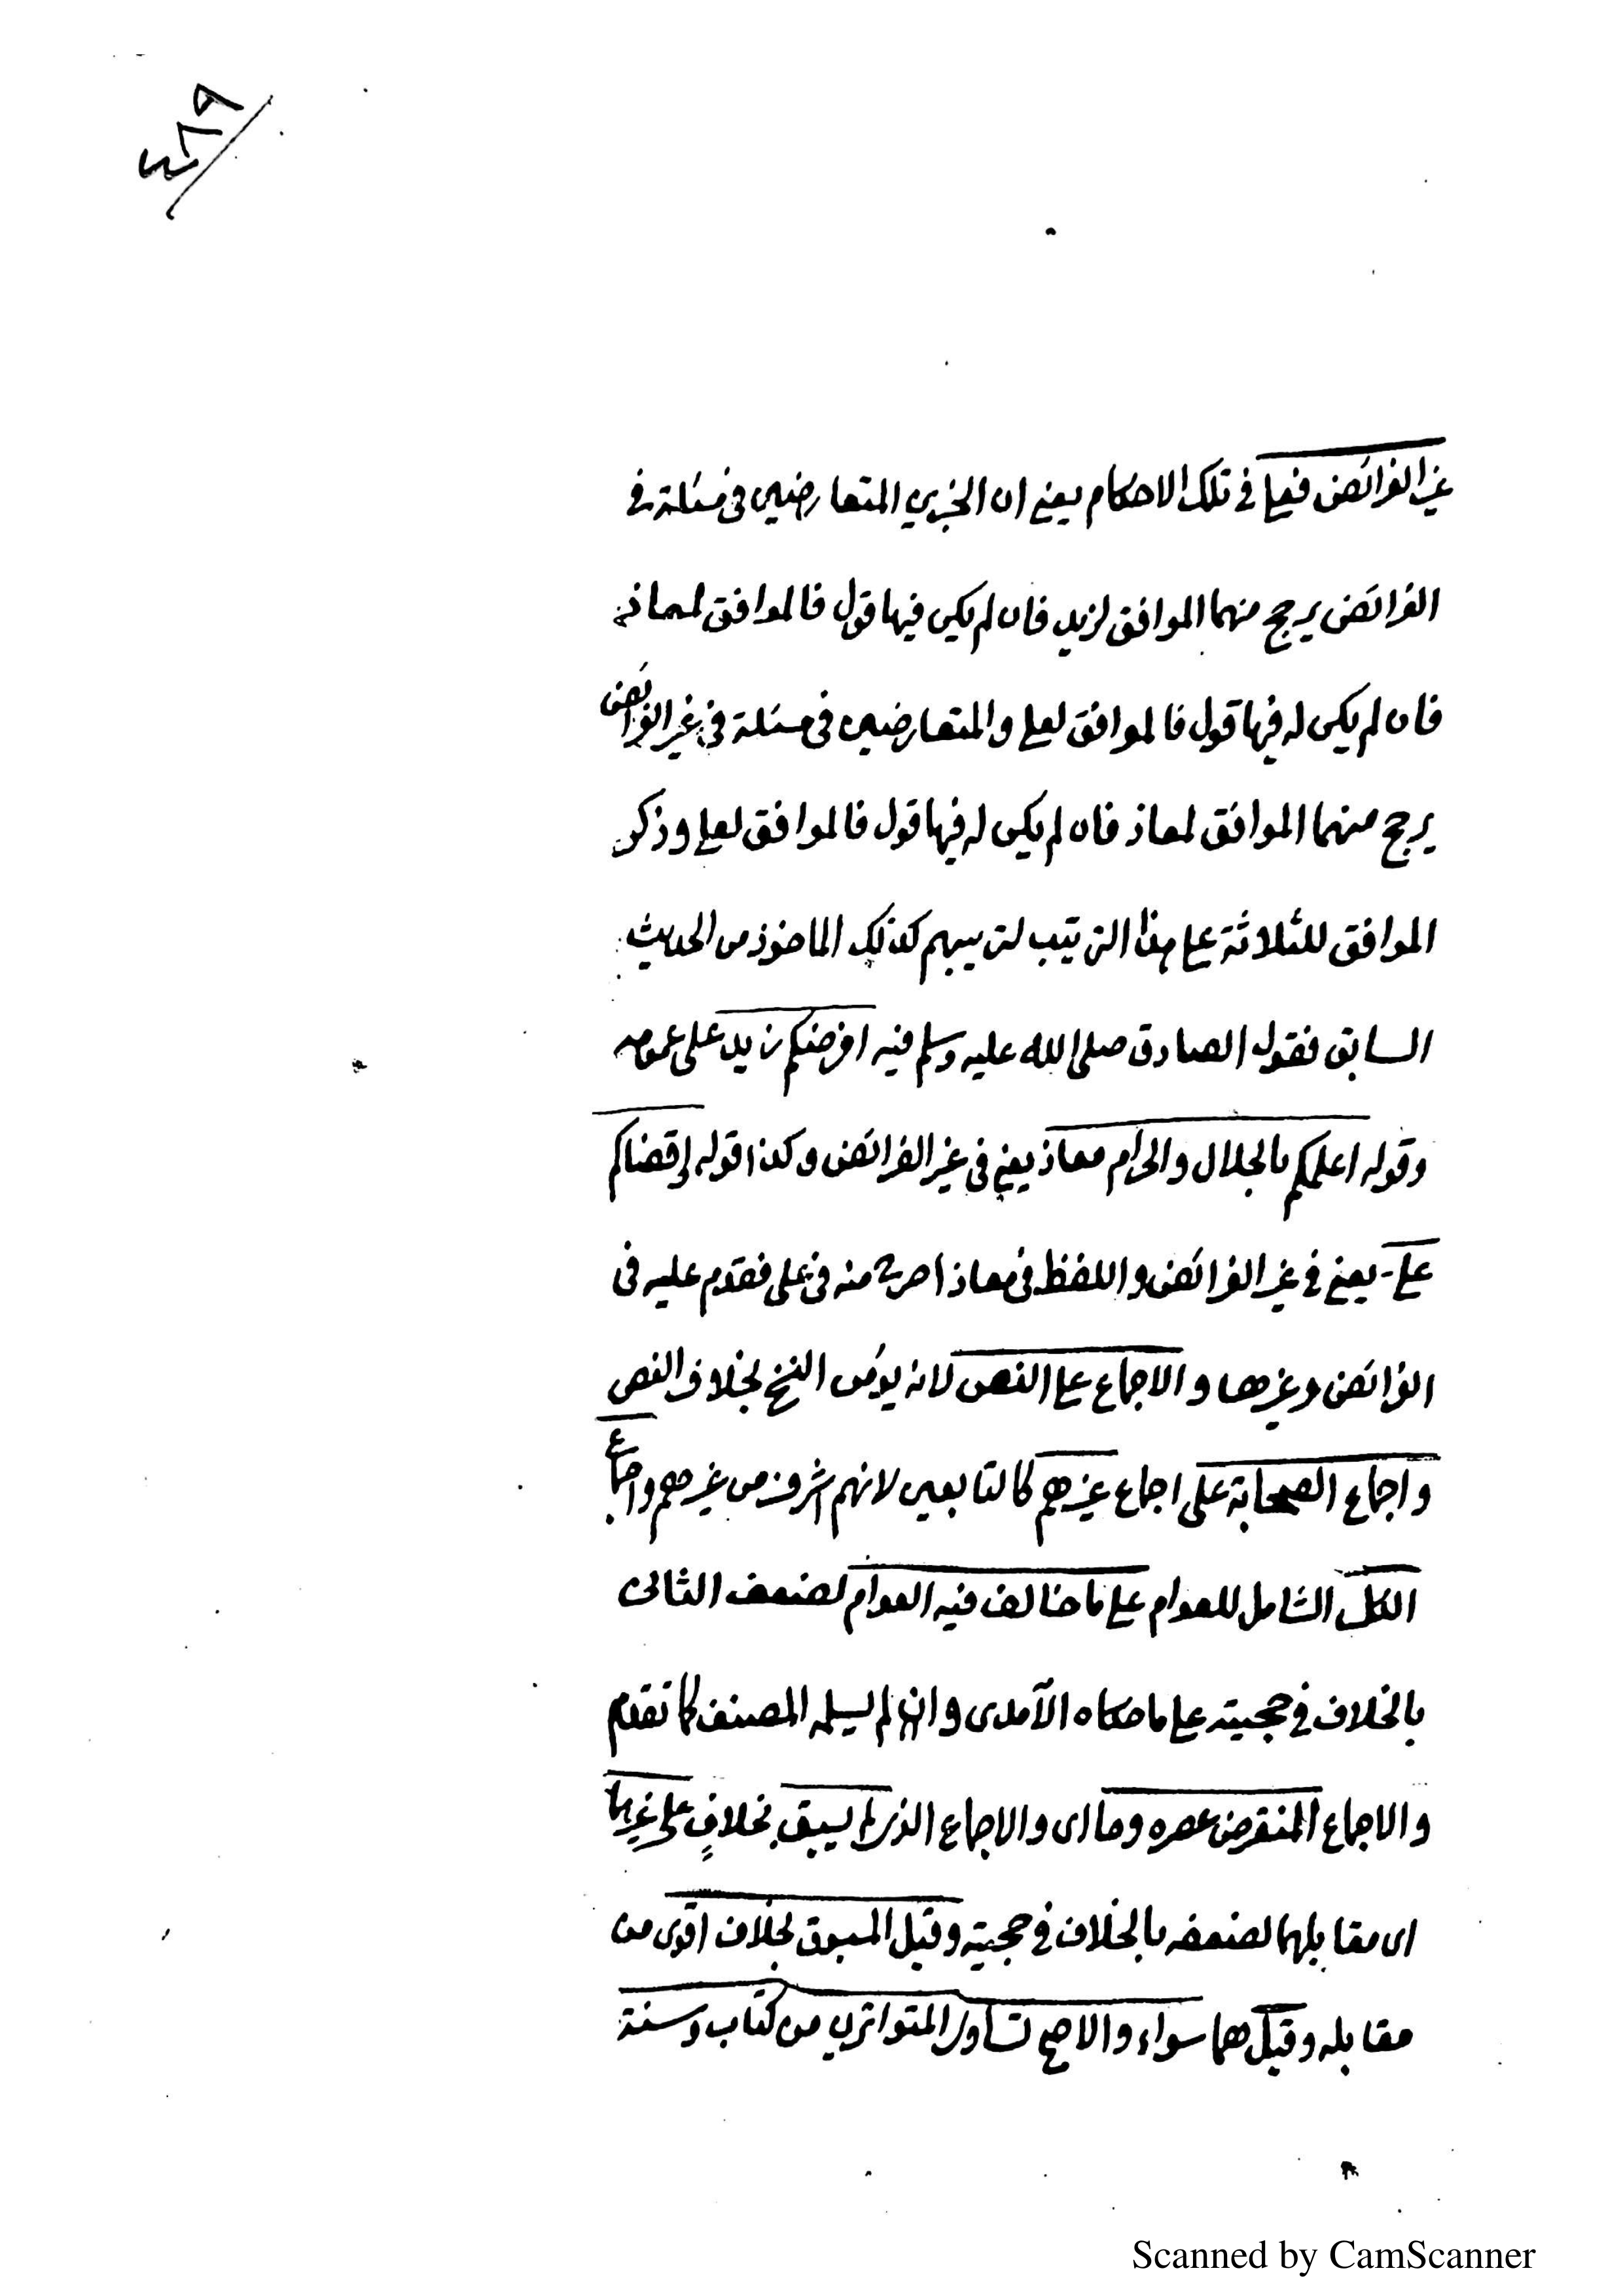 ٤٨٩
غير الفرائض فعلي في تلك الاحكام يعني ان الخبرين المتعارضين في مسئلة في
الفرائض يرجح منهما الموافق لزيد فان لم يكن فيها قول فالموافق لمعاذ
فان لم يكن له فيها قول فالموافق لعلي والمتعارضين في مسئلة في غير الفرائض
يرجح منهما الموافق لمعاذ فان لم يكن له فيها قول فالموافق لعلي وذكر
الموافق للثلاثة علي هذا الترتيب لترتيبهم كذلك الماخوذ من الحديث
السابق فقول الصادق صلى الله عليه وسلم فيه افرضكم زيد على عمومه
وقوله اعلمكم بالحلال والحرام معاذ يعني في غير الفرائض وكذا قوله اقضاكم
علي يعني في غير الفرائض واللفظ في معاذ اصرح منه في علي فقدم عليه في
الفرائض وغيرها والاجماع علي النص لانه يؤمن النسخ بخلاف النص
واجماع الصحابة على اجماع غيرهم كالتابعين لانهم اشرف من غيرهم واجماع
الكل الشامل للعوام علي ما خالف فيه العوام لضعف الثانى
بالخلاف في حجيته علي ما حكاه الآمدى وان لم يسلمه المصنف كما تقدم
والاجماع المنقرض عصره وما اى والاجماع الذي لم يسبق بخلافٍ على غيرهما
اى مقابلهما لضعفه بالخلاف في حجيته وقيل المسبوق بخلاف اقوى من
مقابله وقيل هما سواء والاصح تساوى المتواترين من كتاب وسنة
Scanned by CamScanner